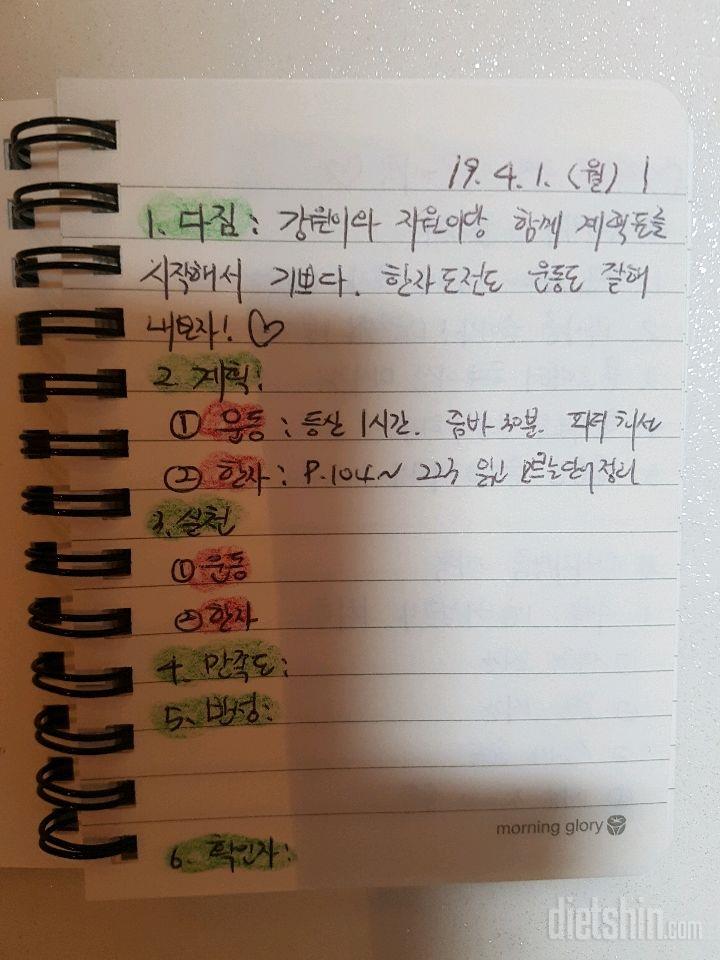 19. 4. 1. (월) 1
1. 다짐 : 강원이와 지원이랑 함께 계획표를
시작해서 기쁘다. 한자도전도 운동도 잘해
내보자! ♡
2. 계획:
① 운동 : 등산 1시간. 줌바 30분.
② 한자 : P.104~ 223 읽고 모르는단어정리
3. 실천
① 운동
② 한자
4. 만족도:
5. 반성:
morning glory
6. 확인자:
dietshin.com